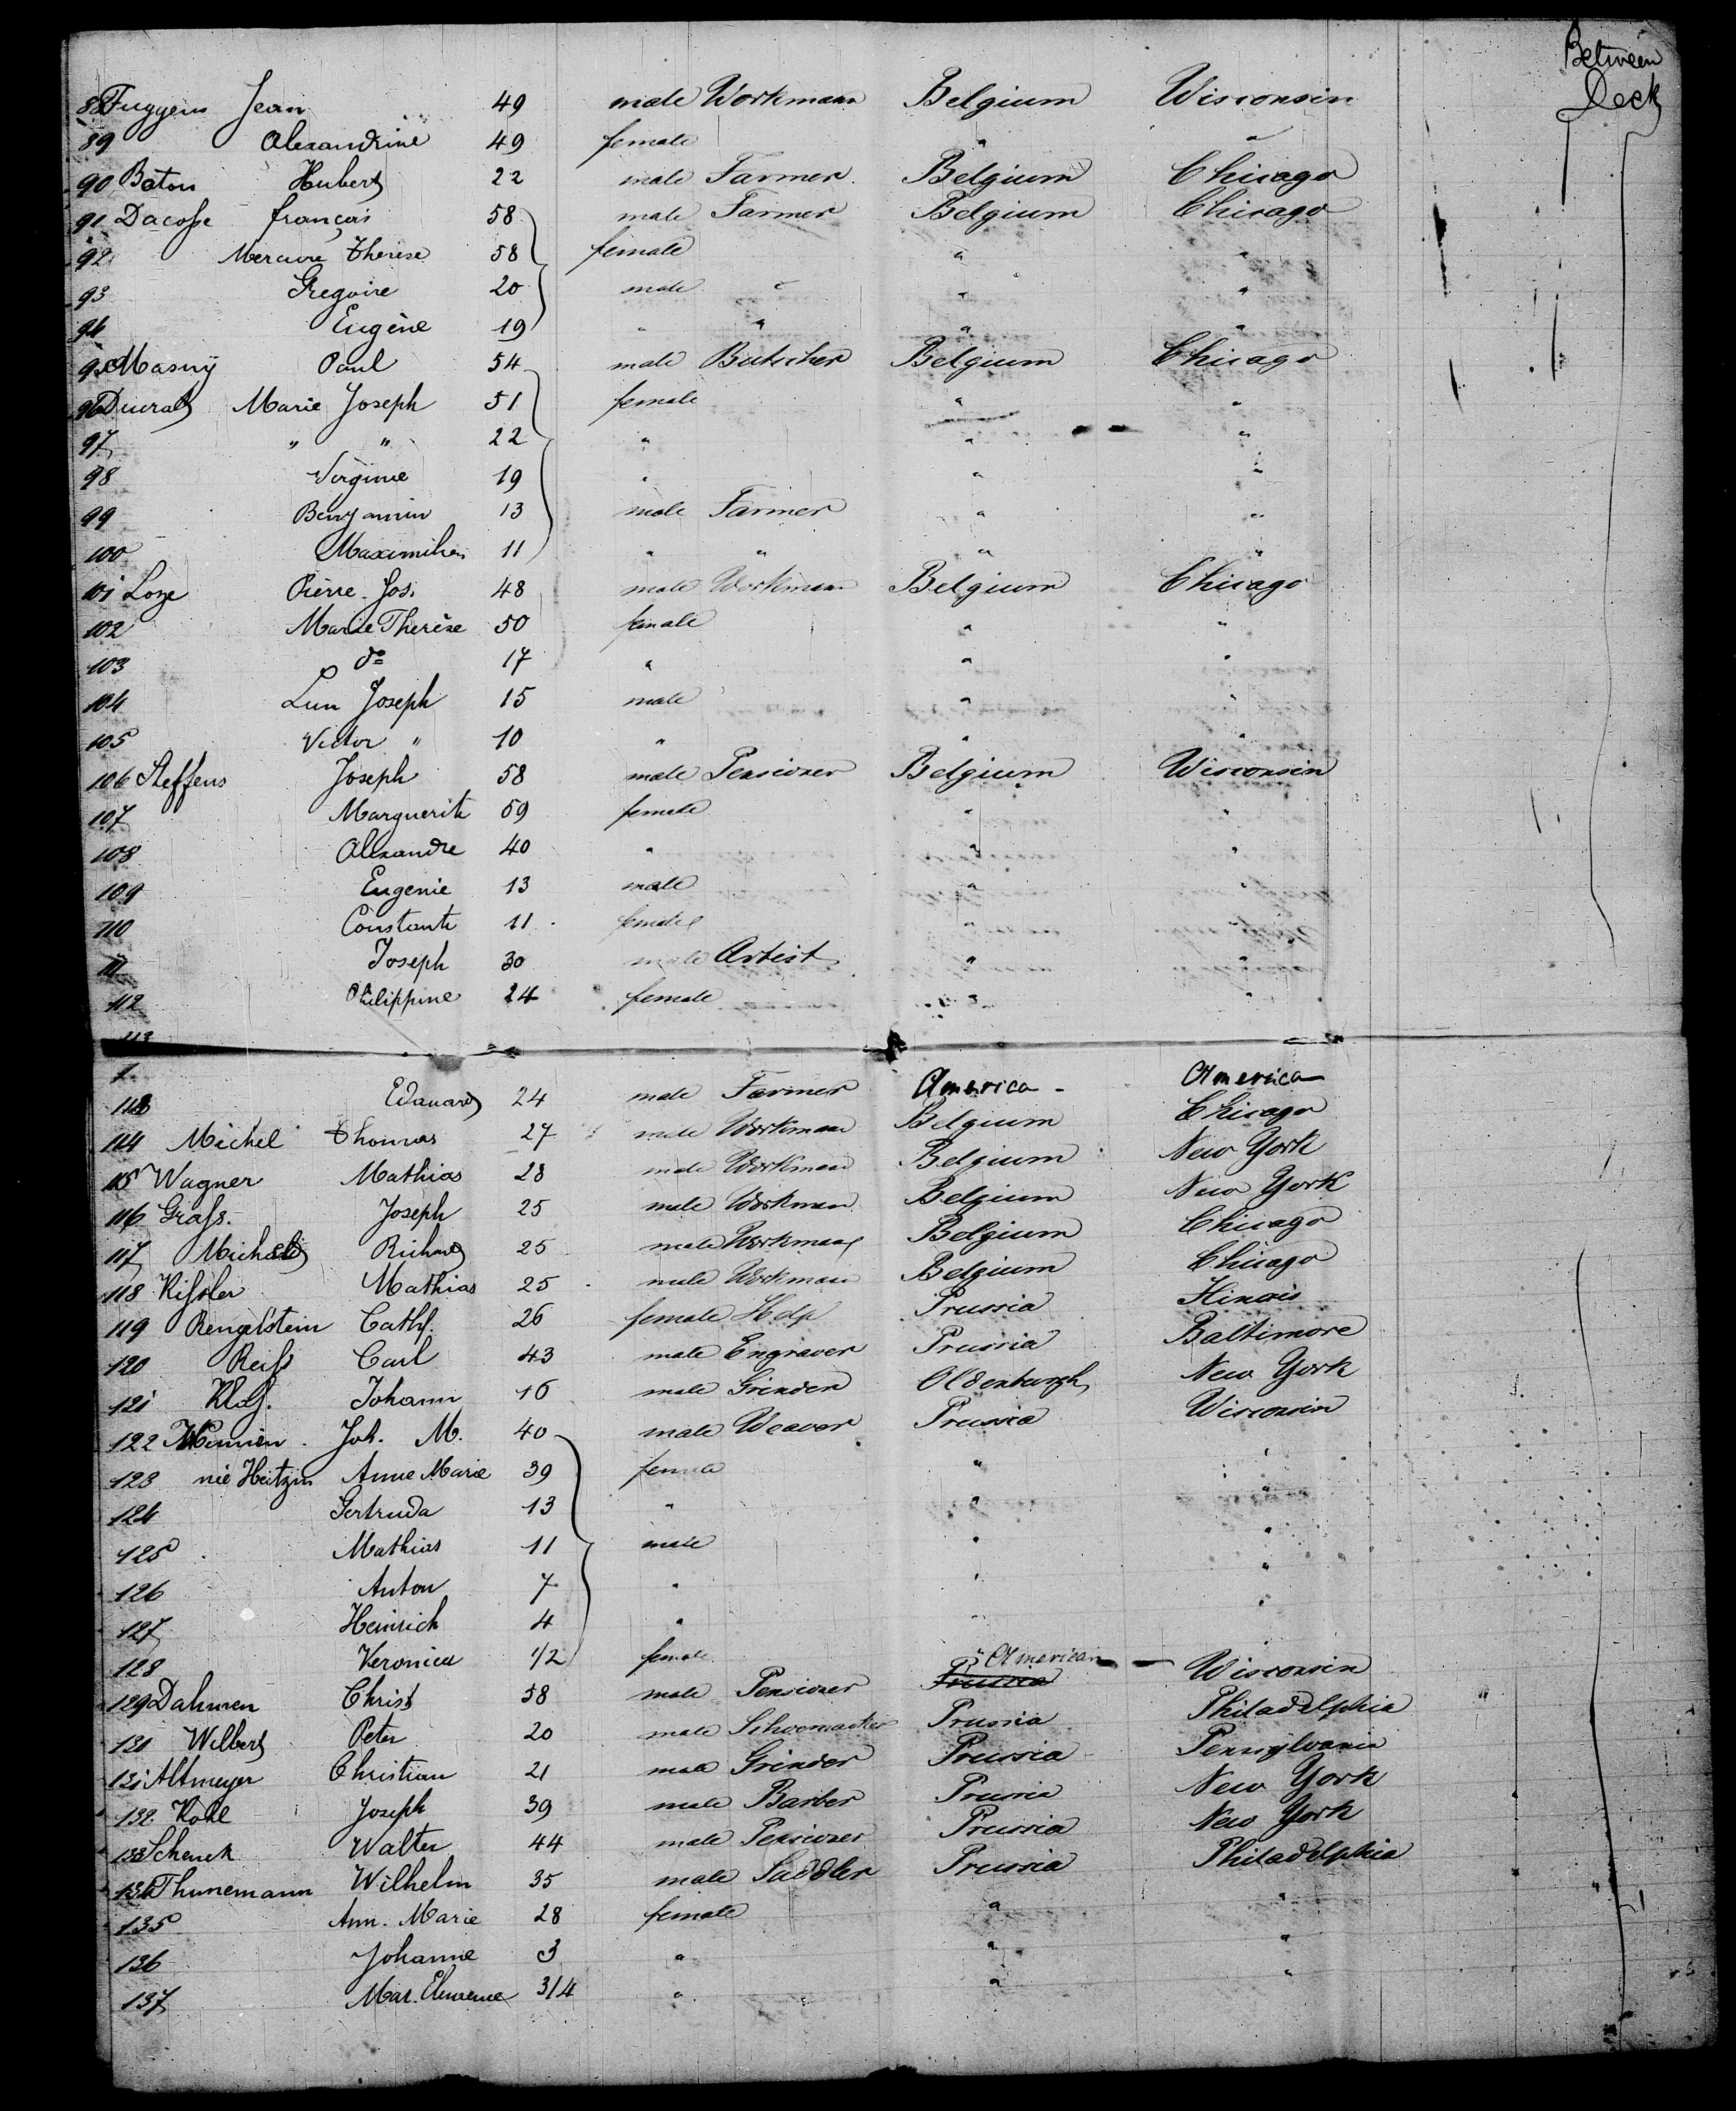 Between
Deck
88 Fuggens Jean 49 male Workmann Belgium Wisconsin
89 Alexandrine 49 female " "
90 Baton Hubert 22 male Farmer Belgium Chicago
91 Dacosse françois 58 male Farmer Belgium Chicago
92 Mercure Therese 58 female " "
93 Gregoire 20 male " " "
94 Eugène 19 " " " "
95 Masuy Paul 54 male Butscher Belgium Chicago
96 Marie Joseph 51 female " "
97 " " 22 " " "
98 Virginie 19 " " "
99 Benjamin 13 male Farmer " "
100 Maximilien 11 " " " "
101 Loze Pièrre Jos. 48 male Workmann Belgium Chicago
102 Marie Therèse 50 female " "
103 do 17 " " "
104 Joseph 15 male " "
105 Victor " 10 " " "
106 Steffens Joseph 58 male Pensioner Belgium Wisconsin
107 Marguerite 59 female " "
108 Alexandre 40 " " "
109 Eugenie 13 male " "
110 Constant 11 female " "
111 Joseph 30 male Artist " "
112 Philippine 24 female " "
113
113 Edouard 24 male Farmer America - America
114 Michel Thomas 27 male Workman Belgium Chicago
115 Wagner Mathias 28 male Workman Belgium New York
116 Grass. Joseph 25 male Workman Belgium New York
117 Richard 25 male Workman Belgium Chicago
118 Kissler Mathias 25 male Workman Belgium Chicago
119 Rengelstein Cath. 26 female Help Prussia Ilinois
120 Reiss Carl 43 male Engraver Prussia Baltimore
121 Johann 16 male Grinder Oldenburgh New York
122 Joh. M. 40 male Weaver Prussia Wisconsin
123 née Anne Marie 39 female " "
124 Gertruda 13 " " "
125 Mathias 11 male " "
126 Anton 7 " " "
127 Heinrich 4 " " "
128 Veronica 1/2 female " "
American
129 Dahmen Christ 58 male Pensioner Prussia Wisconsin
130 Wilbert Peter 20 male Schoemacker Prussia Philadelphia
131 Altmeyer Christian 21 male Grinder Prussia Pensylvania
132 Kohl Joseph 39 male Barber Prussia New York
133 Schenck Walter 44 male Pensioner Prussia New York
134 Thunemann Wilhelm 35 male Saddler Prussia Philadelphia
135 Ann. Marie 28 female " "
136 Johanne 3 " " "
137 Mar. 3/4 " "